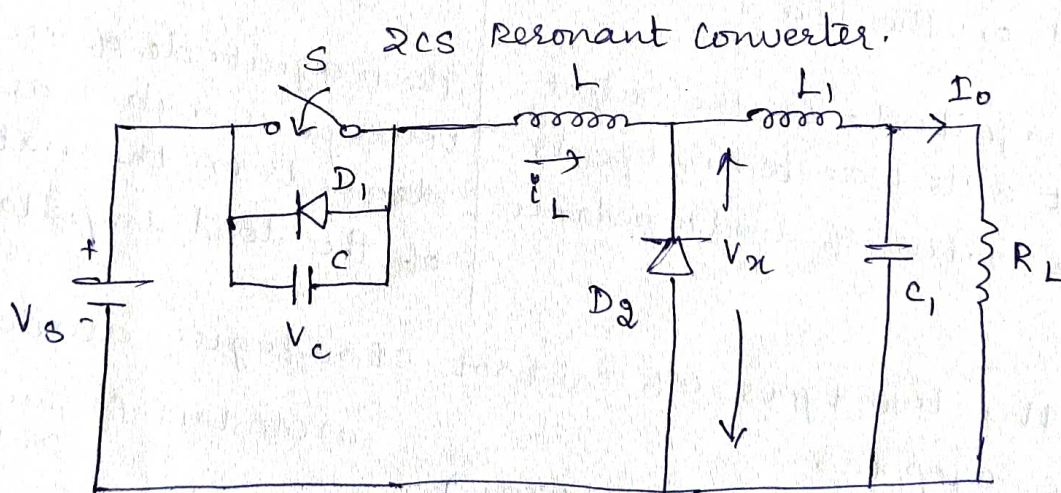 2CS Resonant Converter.
S
L
L1
I0
D1
iL
C
Vc
+
Vs -
D2
Vx
C1
RL